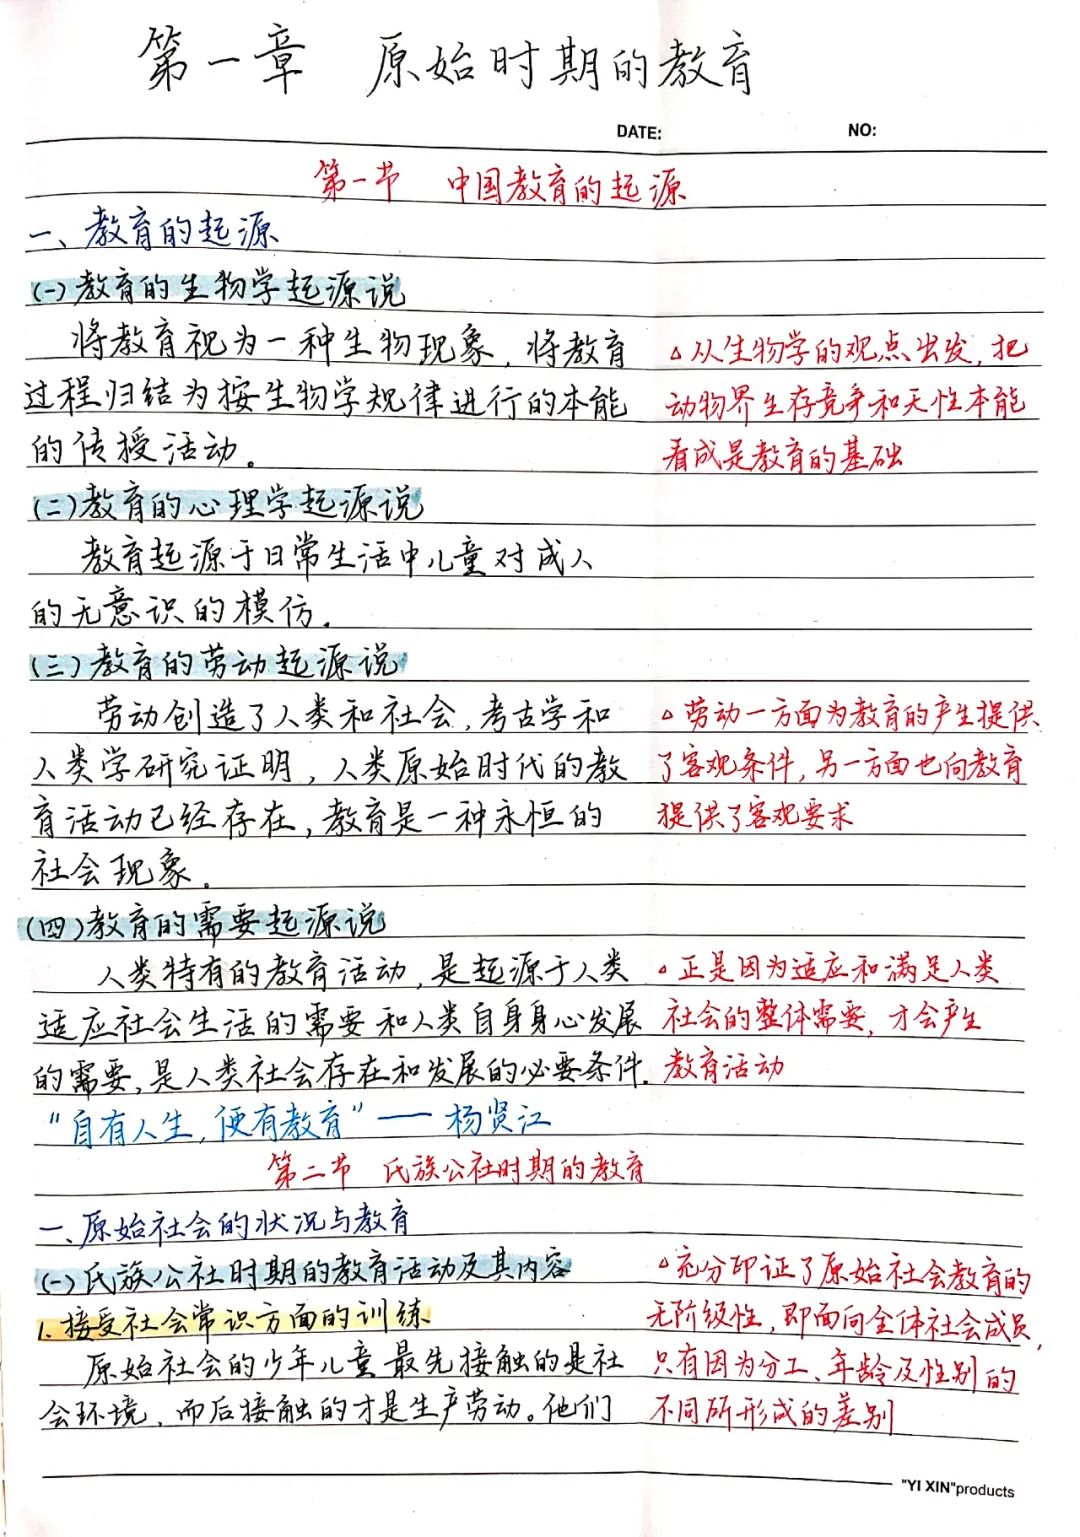 第一章 原始时期的教育
DATE: NO:
第一节 中国教育的起源
一、教育的起源
(一)教育的生物学起源说
将教育视为一种生物现象，将教育
过程归结为按生物学规律进行的本能
的传授活动。
▵从生物学的观点出发，把
动物界生存竞争和天性本能
看成是教育的基础
(二)教育的心理学起源说
教育起源于日常生活中儿童对成人
的无意识的模仿.
(三)教育的劳动起源说
劳动创造了人类和社会，考古学和
人类学研究证明，人类原始时代的教
育活动已经存在，教育是一种永恒的
社会现象.
▵劳动一方面为教育的产生提供
了客观条件，另一方面也向教育
提供了客观要求
(四)教育的需要起源说
人类特有的教育活动，是起源于人类
适应社会生活的需要和人类自身身心发展
的需要，是人类社会存在和发展的必要条件.
▵正是因为适应和满足人类
社会的整体需要，才会产生
教育活动
“自有人生，便有教育”——杨贤江
第二节 氏族公社时期的教育
一、原始社会的状况与教育
(一)氏族公社时期的教育活动及其内容
1.接受社会常识方面的训练
原始社会的少年儿童最先接触的是社
会环境，而后接触的才是生产劳动。他们
▵充分印证了原始社会教育的
无阶级性，即面向全体社会成员，
只有因为分工、年龄及性别的
不同所形成的差别
"YI XIN"products